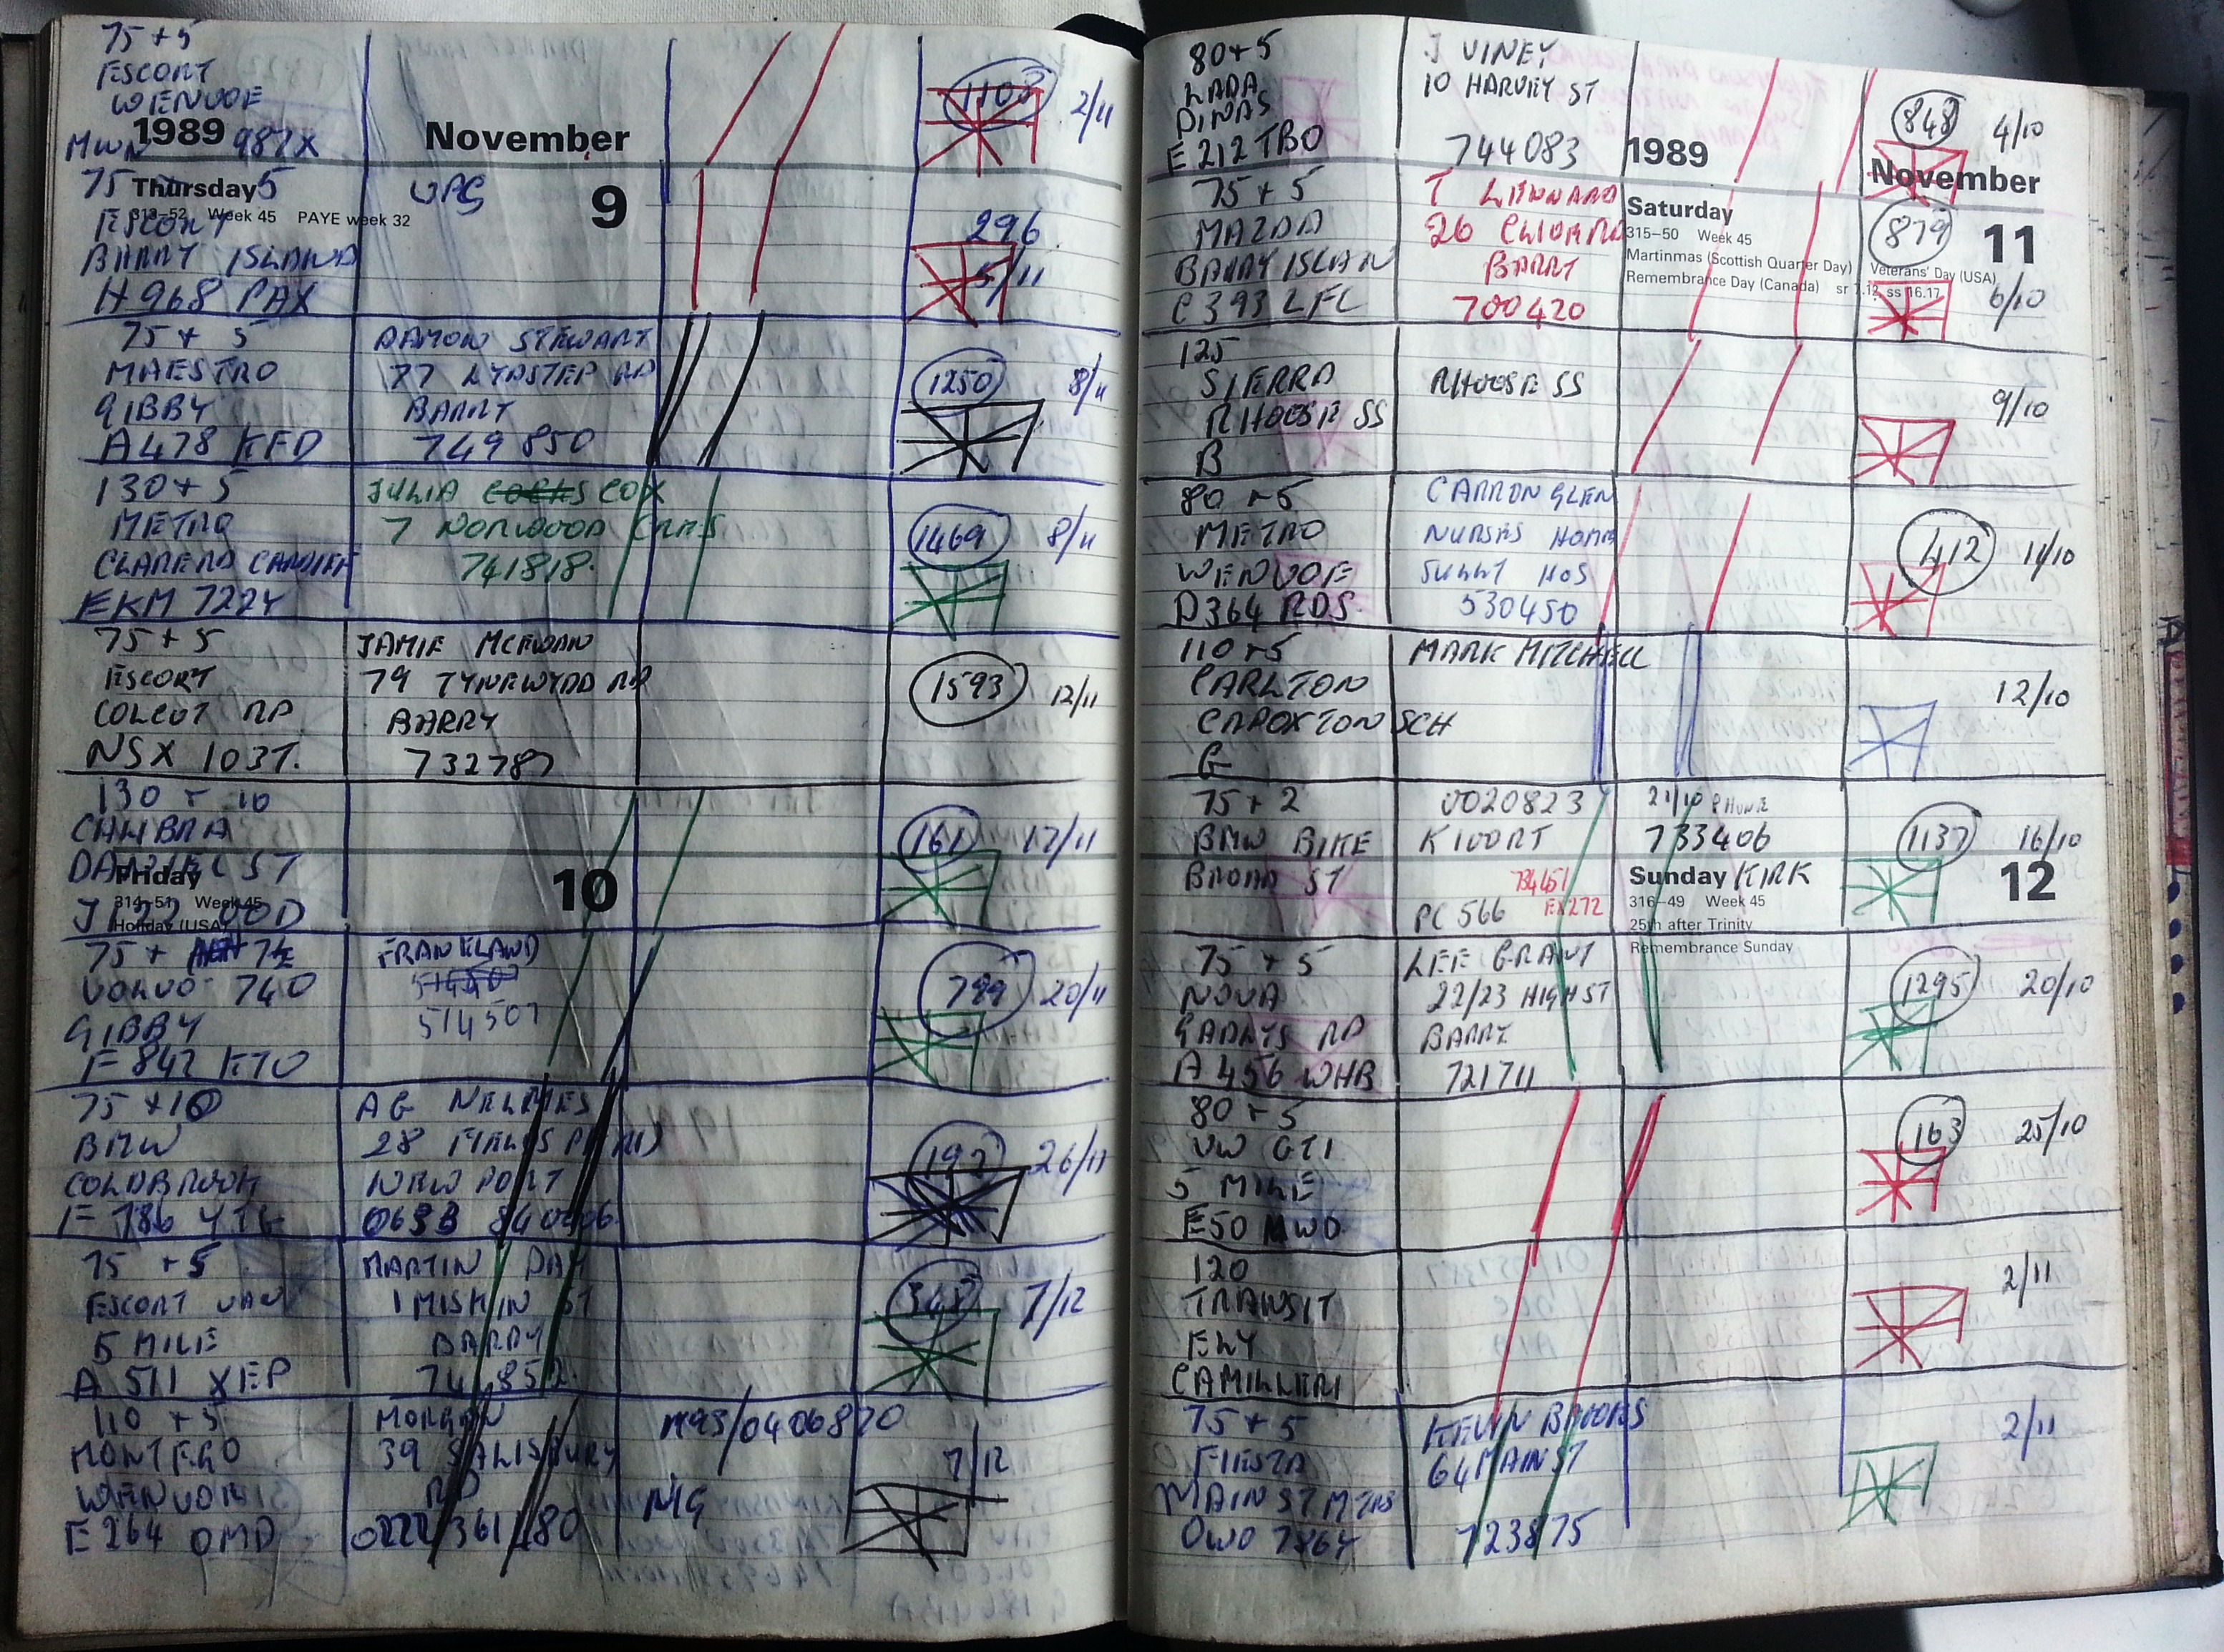 75 + 5
ESCORT
WENVOE
1108 2/11
1989 November
MWN 987X
75 5
Thursday 9
313–52 Week 45 PAYE week 32
ESCORT
BARRY ISLAND
H968 PAX
296
5/11
75 + 5 DAMON STEWART
MAESTRO 77 LYDSTEP RD 1250 8/11
GIBBY BARRY
A478 KFD 749850
130 + 5 JULIA COX
METRO 7 NORWOOD CRES 1469 8/11
CLAREND CARDIFF 741818.
EKM 722Y
75 + 5 JAMIE MCEWAN
ESCORT 79 TYNEWYDD RD 1593 12/11
COLCOT RD BARRY
NSX 103T. 732787
130 + 10
CALIBRA 161 17/11
DANIEL ST
Friday 10
314–51 Week 45
Holiday (USA)
J122 OOD
75 + FRANKLAND
VOLVO 740 789 20/11
GIBBY 514507
F842 KTO
75 + 10 AG NELMES
BMW 28 FIELDS PARK 192 26/11
COLDBROOK NEWPORT
0633
75 + 5 MARTIN DAY
ESCORT VAN 1 MISKIN ST 7/12
5 MILE BARRY
A511 XEP
110 + 5 MORGAN M93/0406820
MONTEGO 39 SALISBURY 7/12
WENVOE RD
E264 OMD 0222 361480 NIG
80 + 5 J VINEY
LADA 10 HARVEY ST 848 4/10
DINAS
E212 TBO 744083
1989 November
75 + 5 T LENNARD
Saturday 11
MAZDA 26 879
315–50 Week 45
Martinmas (Scottish Quarter Day) Veterans' Day (USA)
BARRY ISLAN BARRY
Remembrance Day (Canada) sr 7.12, ss 16.17
C393 LFC 700420 6/10
125
SIERRA RHOOSE SS 9/10
RHOOSE SS
B
80 + 5 CARRON GLEN
METRO NURSES HOME 412 11/10
WENVOE SULLY HOS
D364 RDS. 530450
110 + 5 MARK MITCHELL
CARLTON 12/10
SCH
G
75 + 2 0020823 21/10 PHONE
BMW BIKE 733406 1137 16/10
BROAD ST
Sunday KIRK 12
316–49 Week 45
PC 566
25th after Trinity
Remembrance Sunday
75 + 5 LEE GRANT
NOVA 22/23 HIGH ST 1295 20/10
GADLYS RD BARRY
A456 WHB 721711
80 + 5
VW GTI 163 25/10
5 MILE
E50 MWO
120 2/11
TRANSIT
ELY
CAMILLERI
75 + 5 KEVIN BROOKS 2/11
FIESTA 64 MAIN ST
MAIN ST MTRS
OWO 786Y 723875